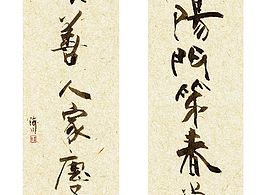 陽門第春
善人家慶